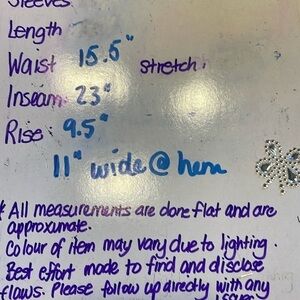 Sleeves
Length
Waist 15.5" stretch!
Inseam: 23"
Rise: 9.5"
11" wide @ hem
* All measurements are done flat and are
approximate.
Colour of item may vary due to lighting.
Best effort made to find and disclose
flaws. Please follow up directly with any